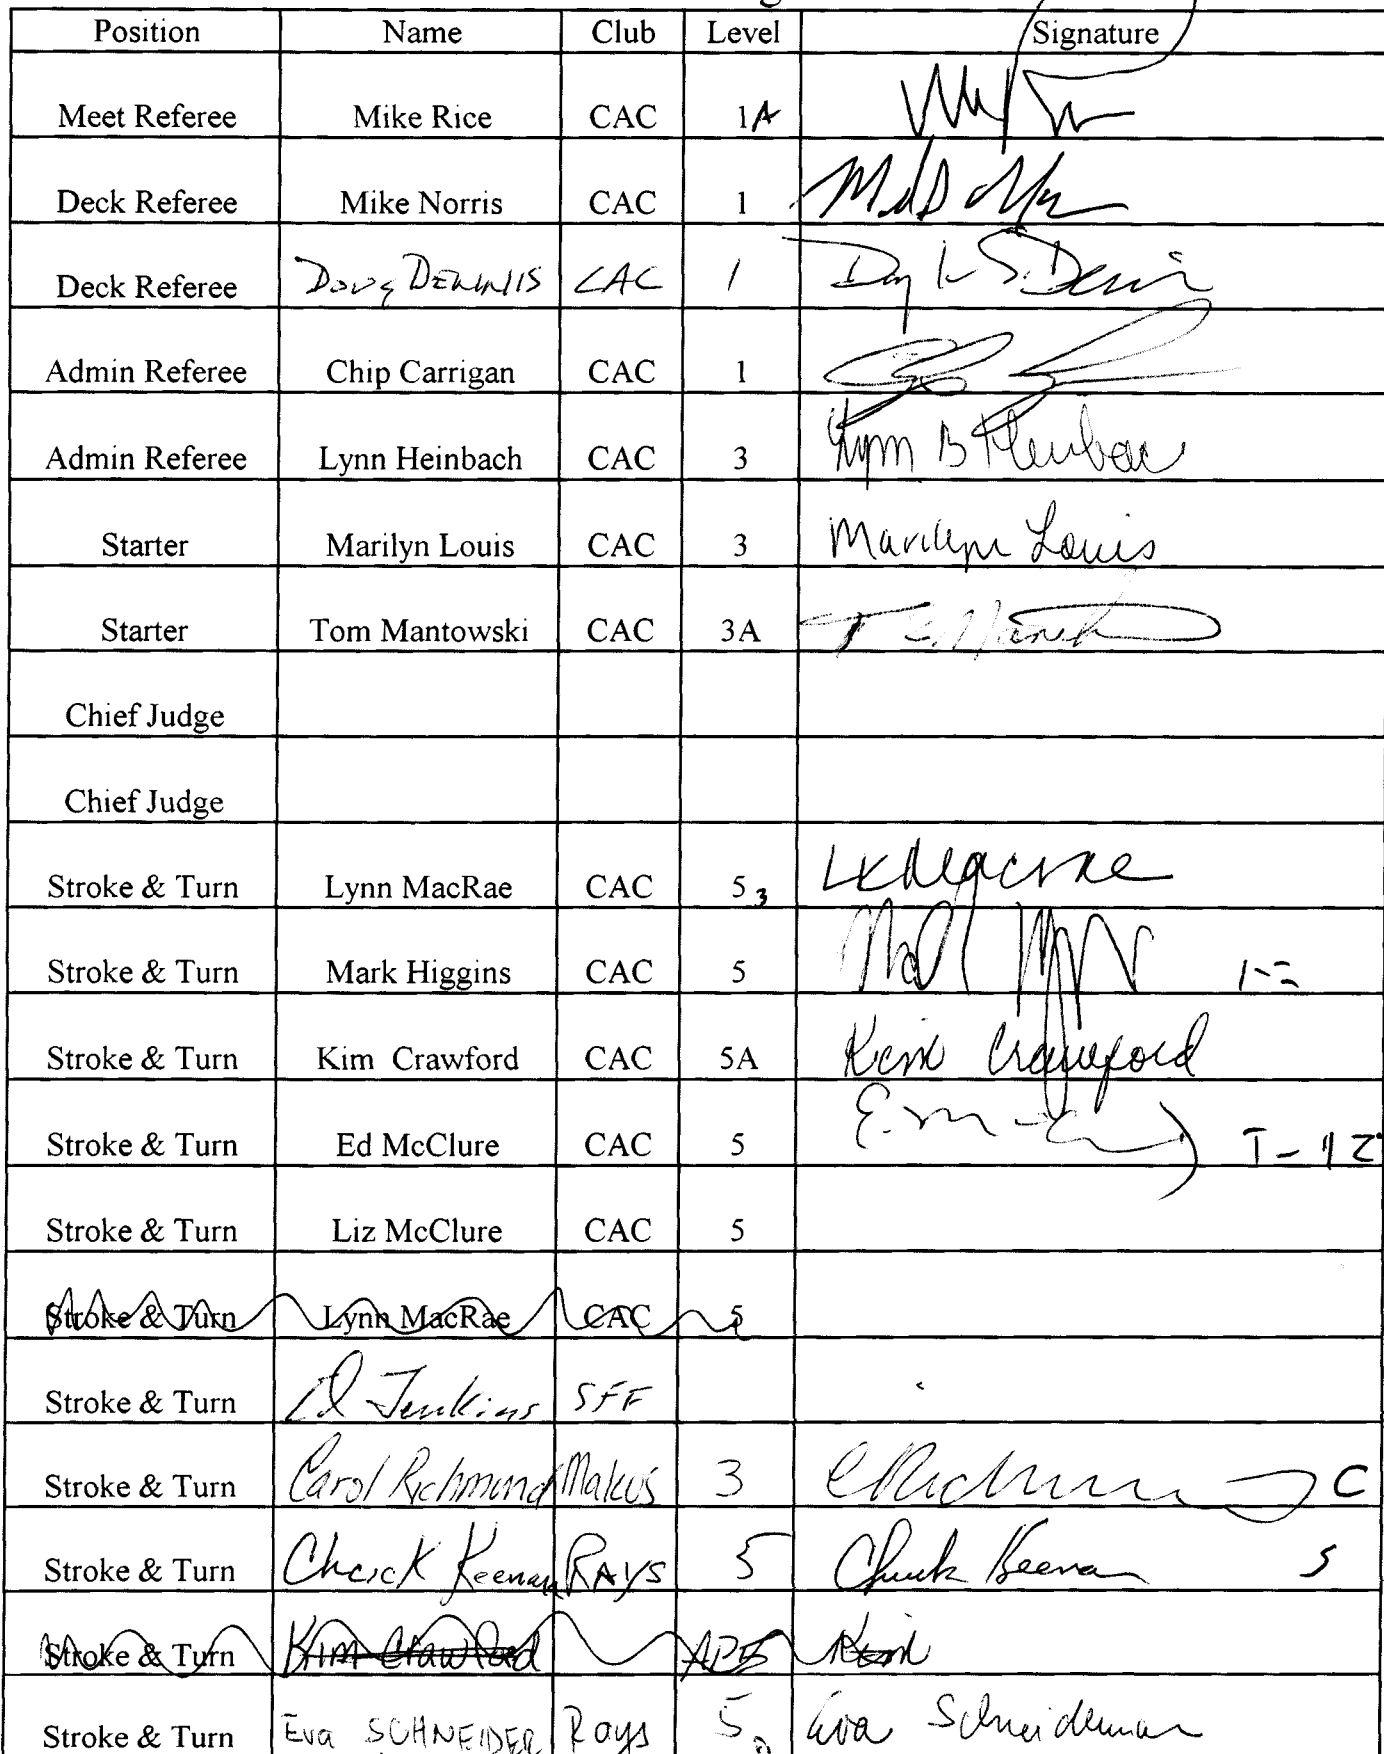 Position Name Club Level Signature
Meet Referee Mike Rice CAC 1A
Deck Referee Mike Norris CAC 1
Deck Referee Doug DENNIS CAC 1
Admin Referee Chip Carrigan CAC 1
Admin Referee Lynn Heinbach CAC 3
Starter Marilyn Louis CAC 3 Marilyn Louis
Starter Tom Mantowski CAC 3A
Chief Judge
Chief Judge
Stroke & Turn Lynn MacRae CAC 5 3
Stroke & Turn Mark Higgins CAC 5
Stroke & Turn Kim Crawford CAC 5A Kim Crawford
Stroke & Turn Ed McClure CAC 5
Stroke & Turn Liz McClure CAC 5
Stroke & Turn Lynn MacRae CAC 5
Stroke & Turn Ed Jenkins SFF
Stroke & Turn Carol Richmond Makos 3 C
Stroke & Turn Chuck Keenan RAYS 5 Chuck Keenan 5
Stroke & Turn Kim Crawford Kim
Stroke & Turn Eva SCHNEIDER Rays 5 Eva